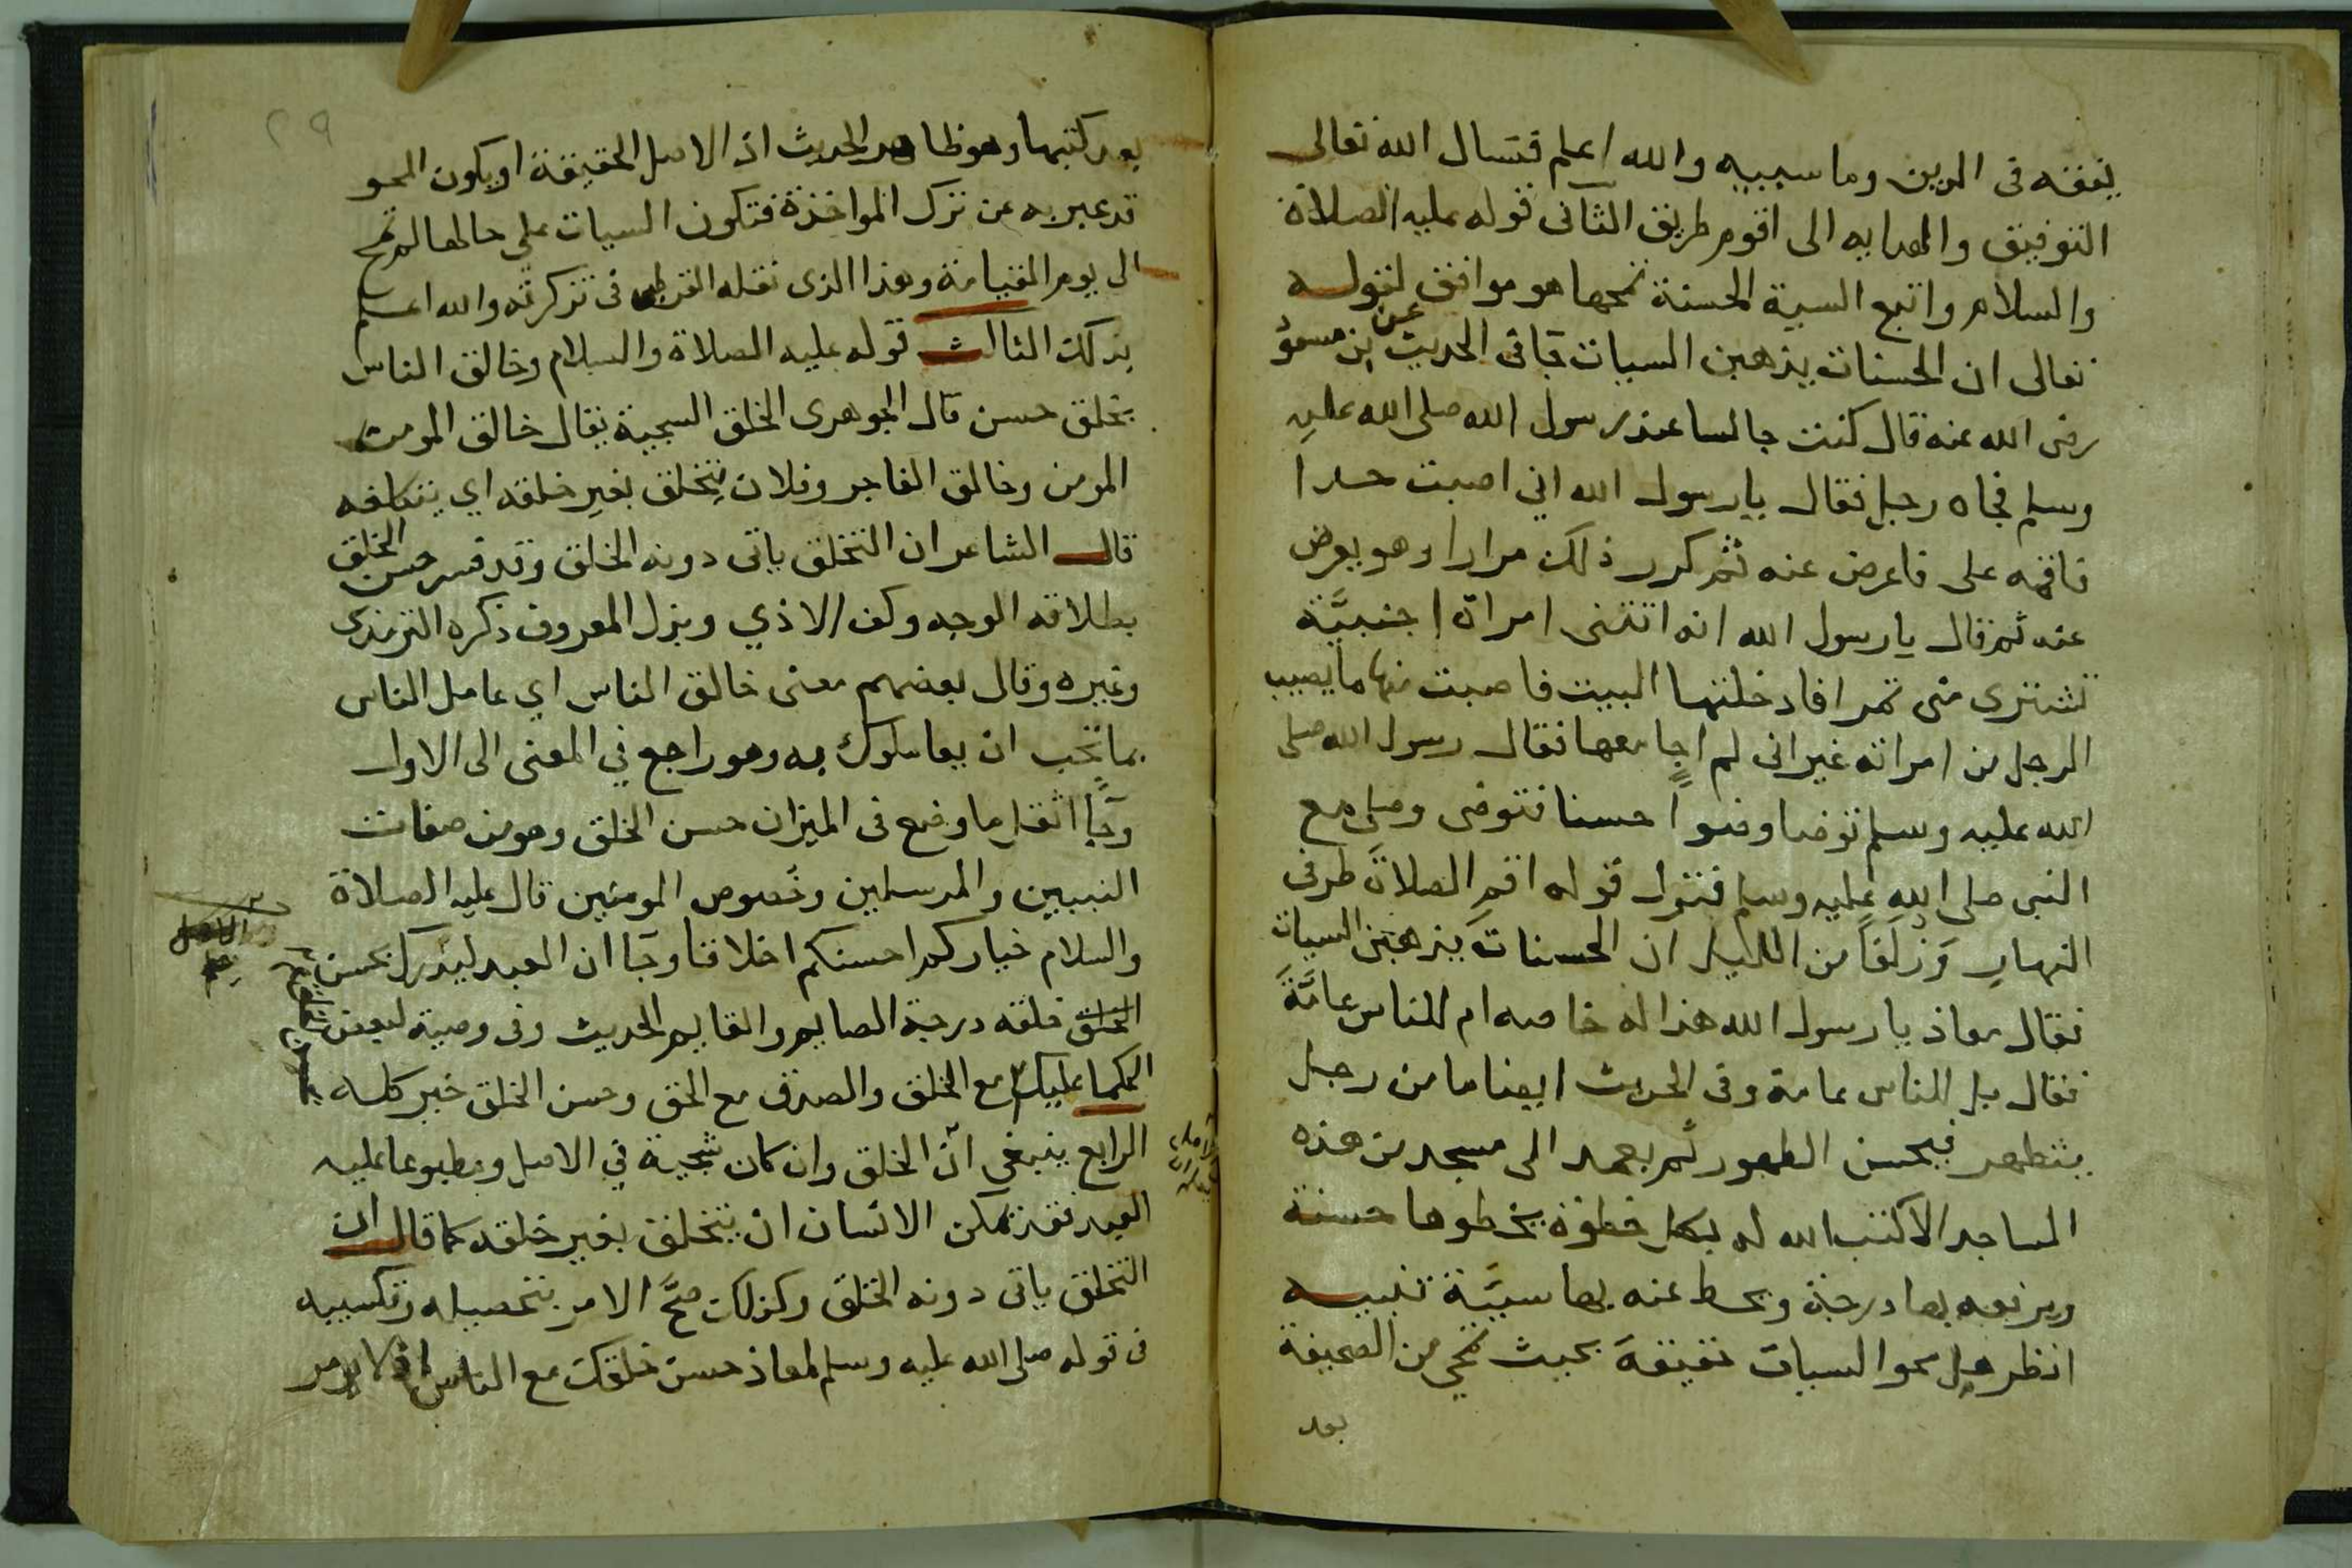 يتفقه في الدين وما سببيه والله اعلم فنسال الله تعالى
التوفيق والهدايه الى اقوم طريق الثاني قوله عليه الصلاة
والسلام واتبع السية الحسنة تمحها هو موافق لقوله
تعالى ان الحسنات يذهبن السيات فافى الحديث عن بن مسعود
رضى الله عنه قال كنت جالسا عند رسول الله صلى الله عليه
وسلم فجاه رجل فقال يا رسول الله اني اصبت حدا
فاقمه على فاعرض عنه ثم كرر ذلك مرارا وهو يعرض
عنه ثم قال يا رسول الله انه اتتنى امراة اجنبيَّة
تشترى منى تمرا فادخلتها البيت فاصبت منها ما يصيب
الرجل من امراته غير انى لم اجامعها فقال رسول الله صلى
الله عليه وسلم توضا وضوا حسنا فتوضى وصلى مع
النبى صلى الله عليه وسلم فنزل قوله اقم الصلاة طرفى
النهار وَزلَفَاً من الليل ان الحسنات يذهبن السيات
فقال معاذ يا رسول الله هذا له خاصه ام للناس عامَّةَ
فقال بل للناس عامة وفى الحديث ايضا ما من رجل
يتطهر فيحسن الطهور ثم يعمد الى مسجد من هذه
المساجد الا كتب الله له بكل خطوة يخطوها حسنة
ويرفعه بها درجة ويحط عنه بها سيَّة تنبيه
انظر هل محو السيات حقيقة بحيث تمحى من الصحيفة
بعد
٢٩
بعد كتبها وهو ظاهر الحديث اذ الاصل الحقيقة او يكون المحو
قد عبر به عن ترك المواخذة فتكون السيات على حالها لم تمح
الى يوم القيامة وهذا الذى نقله القرطبى فى تذكرته والله اعلم
بذلك الثالث قوله عليه الصلاة والسلام وخالق الناس
بخلق حسن قال الجوهرى الخلق السجية يقال خالق المومن
المومن وخالق الفاجر وفلان يتخلق بغير خلقه اي يتكلفه
قال الشاعر ان التخلق ياتى دونه الخلق وقد فسر حسن الخلق
بطلاقه الوجه وكف الاذي وبذل المعروف ذكره الترمذى
وغيره وقال بعضهم معنى خالق الناس اي عامل الناس
بما تحب ان يعاملوك به وهو راجع في المعنى الى الاول
وجَا اثقل ما وضع فى الميزان حسن الخلق وهو من صفات
النبيين والمرسلين وخصوص المومنين قال عليه الصلاة
والسلام خياركم احسنكم اخلاقا وجَا ان العبد ليدرك بحسن
الخلق خلقه درجة الصايم والقايم الحديث وفى وصية لبعض
الحكما عليك مع الخلق والصدق مع الحق وحسن الخلق خير كله
الرابع ينبغي ان الخلق وان كان سجية في الاصل ومطبوعا عليه
العبد فقد تمكن الانسان ان يتخلق بغير خلقه كما قال ان
التخلق ياتى دونه الخلق وكذلك صحَّ الامر بتحصيله وتكسبيه
فى قوله صلى الله عليه وسلم لمعاذ حسن خلقك مع الناس اذ لا يومر